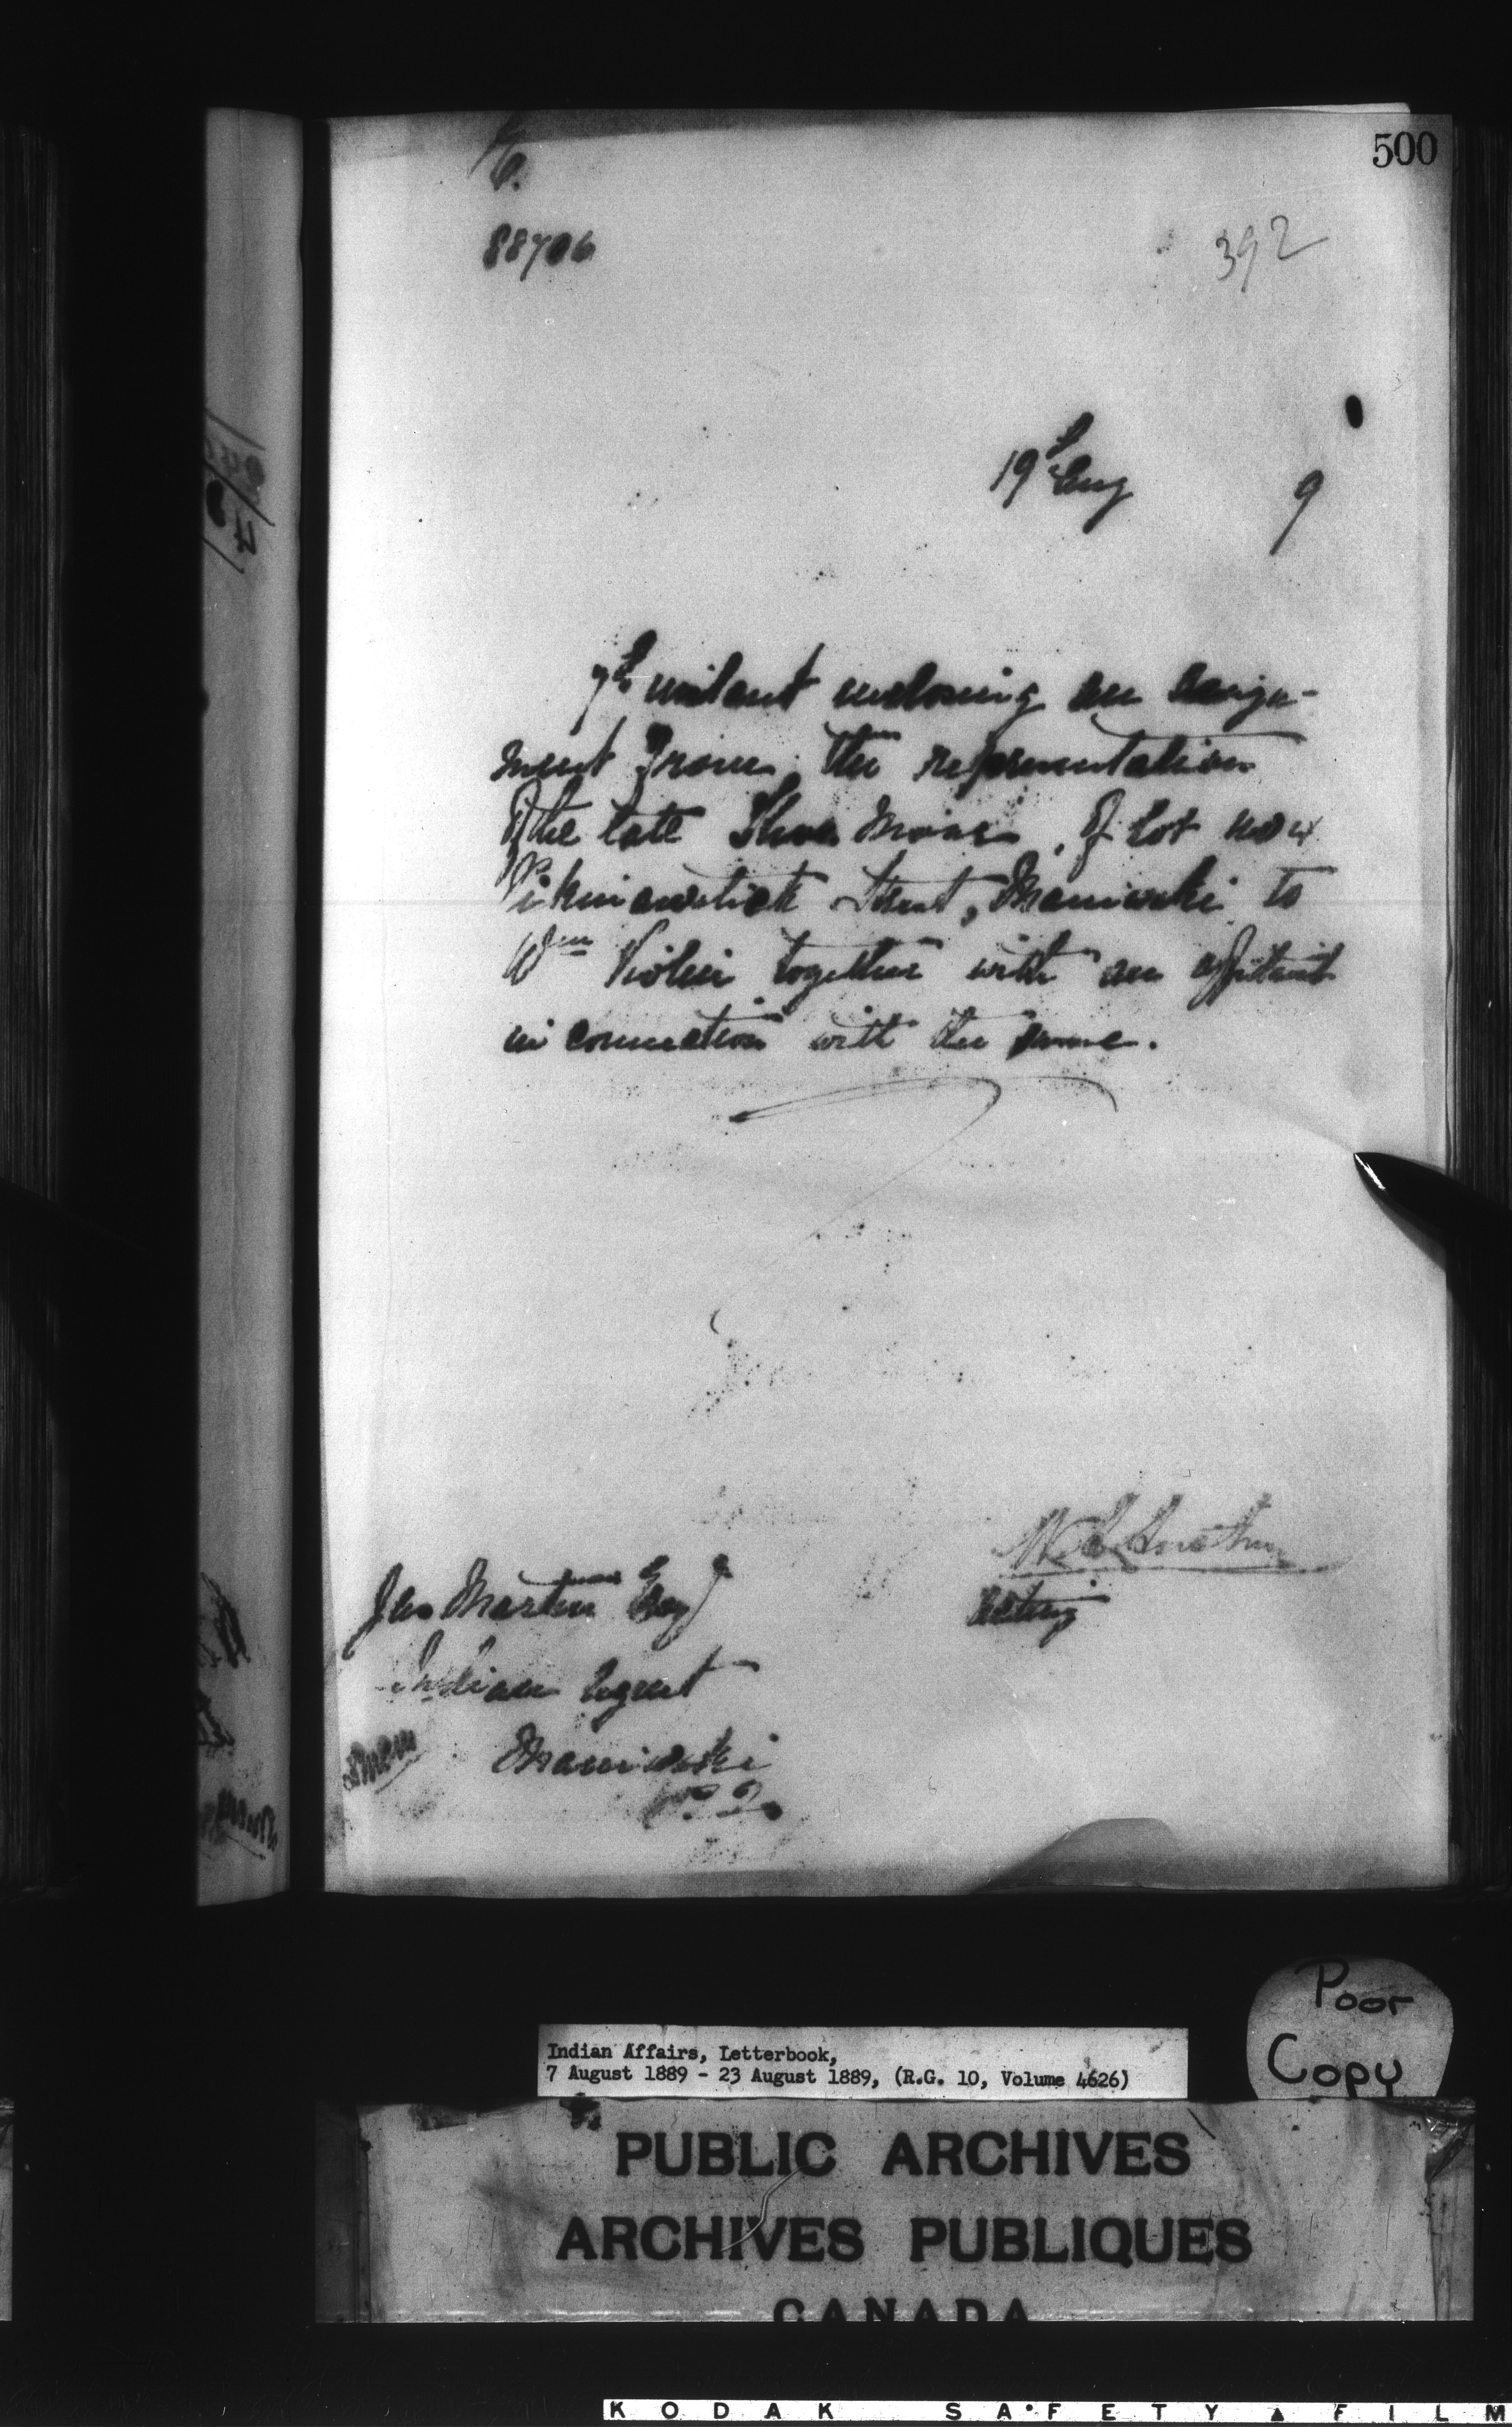 500
88706
392
19th Aug 9
7th instant enclosing an assign-
ment from the representatives
of the late Thos Moine, of lot no 4
street, Maniwaki to
Wm together with an affidavit
in connection with the same.
Acting
Jas Martin Esq
Indian Agent
Maniwaki
P.Q.
Poor
Copy
Indian Affairs, Letterbook,
7 August 1889 - 23 August 1889, (R.G. 10, Volume 4626)
PUBLIC ARCHIVES
ARCHIVES PUBLIQUES
CANADA
KODAK SAFETY FILM